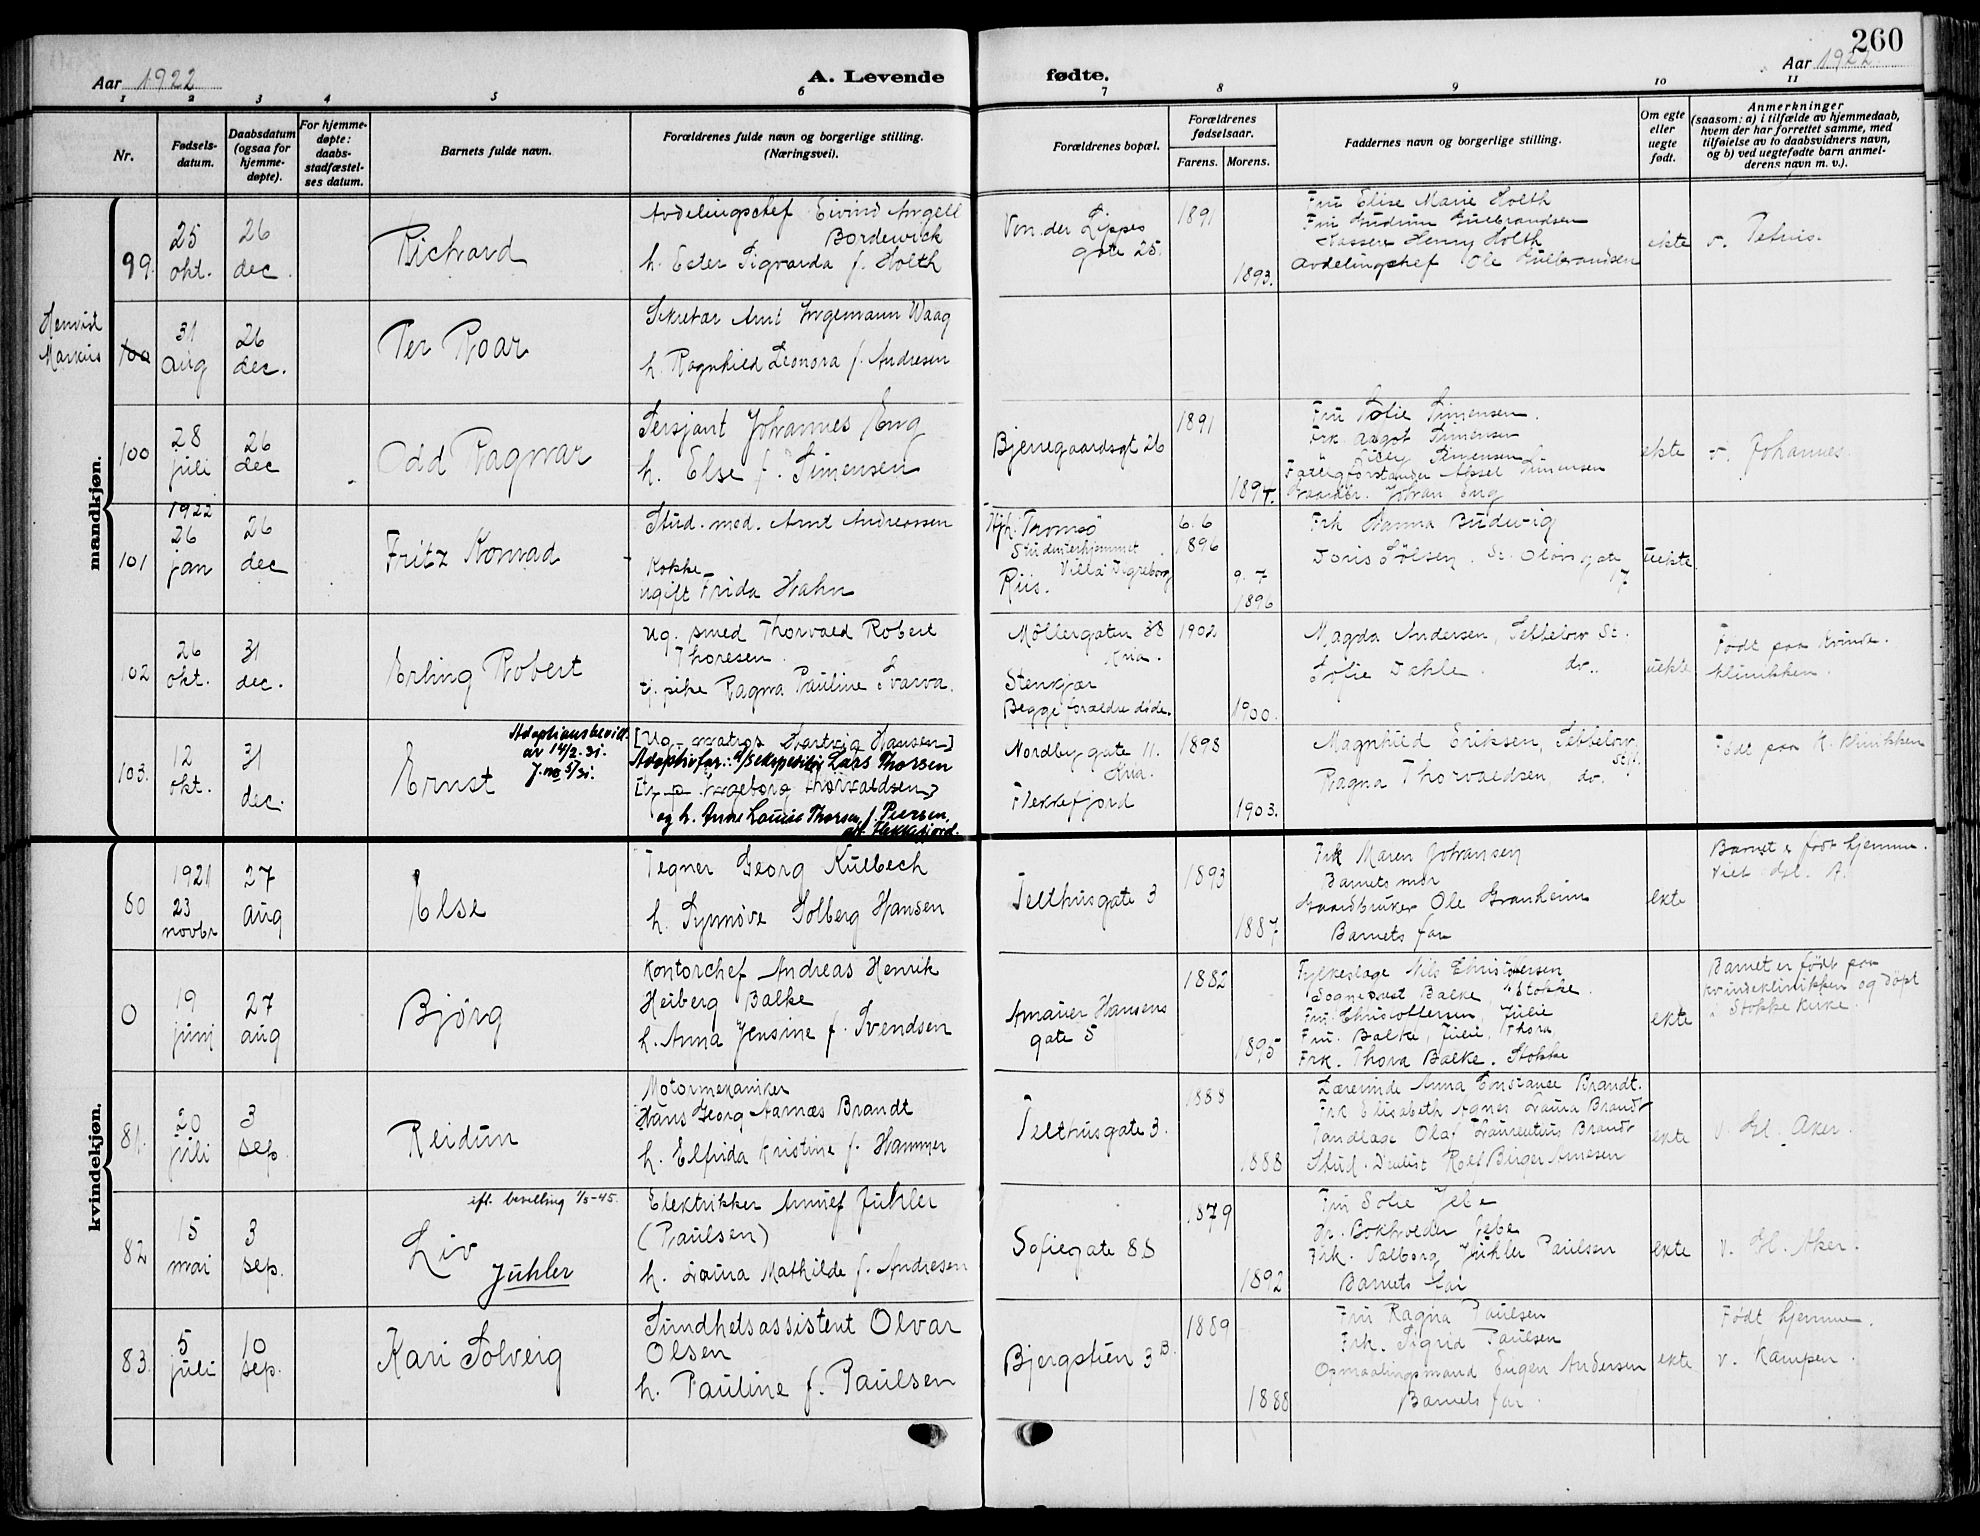 260
Aar 1922
A. Levende fødte.
Aar 1922
1 2 3 4 5 6 7 8 9 10 11
Nr.
Fødsels-
datum.
Daabsdatum
(ogsaa for
hjemme-
døpte).
For hjemme-
døpte:
daabs-
stadfæstel-
ses datum.
Barnets fulde navn.
Forældrenes fulde navn og borgerlige stilling.
(Næringsvei).
Forældrenes bopæl.
Forældrenes
fødselsaar.
Farens. Morens.
Faddernes navn og borgerlige stilling.
Om egte
eller
uegte
født.
Anmerkninger
(saasom: a) i tilfælde av hjemmedaab,
hvem der har forrettet samme, med
tilføielse av to daabsvidners navn,
og b) ved uegtefødte barn anmel-
derens navn m. v.).
mandkjøn.
99.
25
okt.
26
dec.
Richard
Avdelingschef Eivind Angell
Bordewick
h. Ester Sigvarda f. Holth
Von der Lippes
gate 25.
1891
1893.
Fru Elise Marie Holth
Fru Gudrun Gulbrandsen
Kasserer Henry Holth
Avdelingschef Ole Gulbrandsen
ekte
v. Petrus.
Henvist
Markus
100
31
aug
26
dec.
Per Roar
Sekretær Arnt Ingemann Waag
h. Ragnhild Leonora f. Andresen
100
28
juli
26
dec
Odd Ragnar
Sersjant Johannes Eng
h. Else f. Simensen
Bjerregaardsgt 26
1891
1894.
Fru Sofie Simensen.
Frk. Aagot Simensen
" Lilly Simensen
Fattigforstander Aksel Simensen
Gaardbr. Johan Eng
ekte
v. Johannes.
101
1922
26
jan
26
dec
Fritz Konrad
Stud. med. Arnt Andreassen
Kokke
ugift Frida Hahn
Hjh. Tromsö
Studenterhjemmet
Villa Sigreborg
Riis.
6.6
1896
9.7
1896
Frk Hanna Budwig
Doris Sölsen, St. Olavs gate
17
uekte
102
26
okt.
31
dec.
Erling Robert
Ug. smed Thorvald Robert
Thoresen.
tj. pike Ragna Pauline Svarva.
Möllergaten 38
Kria.
Stenkjær
Begge forældre døde.
1902
1900.
Magda Andersen, Sebbelow St.
Sofie Dahle. do.
uekte
Født paa Kvinde-
klinikken.
103.
12
okt.
31
dec.
Ernst
Adoptionsbevill.
av 14/2.31.
J.no 5/31.
[Ug. matros Hartvig Hansen]
Adoptivfar: Ekspeditör Lars Thorsen
[Ug. p. Ingeborg Thorvaldsen]
og h. Anne Louise Thorsen f. Peersen,
av Flekkefjord.
Nordbygate 11.
Kria.
Flekkefjord
1898
1903.
Magnhild Eriksen, Sebbelow
St.
Ragna Thorvaldsen, do.
Født paa K. klinikken
kvindekjøn.
80
1921
23
novbr
27
aug
Else
Tegner Georg Kulbech
h. Synnöve Solberg Hansen
Telthusgate 3
1893
1887
Frk Maren Johansen
Barnets mor
Gaardbruker Ole Granheim
Barnets far
ekte
Barnet er født hjemme.
Viet Gl. A.
0
19
juni
27
aug
Bjørg
Kontorchef Andreas Henrik
Heiberg Balke
h. Anna Jensine f. Svendsen
Amauer Hansens
gate 5
1882
1895
Fylkeslæge Nils Christoffersen
Sogneprest Balke, Stokke.
Fru Christoffersen, Julie
Fru. Balke, Julie, Thora
Frk. Thora Balke. Stokke
ekte
Barnet er født paa
kvindeklinikken og döpt
i Stokke kirke.
81.
20
juli
3
sep.
Reidun
Motormekaniker
Hans Georg Aarnæs Brandt
h. Elfrida Kristine f. Hammer
Telthusgate 3.
1888
1888
Lærerinde Anna Constance Brandt.
Frk Elisabeth Agnes Laura Brandt
Tandlæge Olaf Laurentius Brandt
Stud. Dentist Rolf Birger Arnesen
ekte
v. Gl. Aker.
82
15
mai
3
sep.
efl. bevilling 1/5-45.
Liv
Juhler
Elektrikker Annuf Juhler
(Paulsen)
h. Laura Mathilde f. Andresen
Sofiegate 8S
1879
1892
Fru Sofie Jebe
Hr. Bokholder Jebe
Frk. Valborg Juhler Paulsen
Barnets far
ekte
v. Gl. Aker.
83.
5
juli
10
sep.
Kari Solveig
Sundhetsassistent Olvar
Olsen
h. Pauline f. Paulsen
Bjergstien 3 B.
1889
1888
Fru Ragna Paulsen
Frk. Sigrid Paulsen
Opmaalingsmand Eugen Andersen
Barnets far
ekte
Født hjemme.
v. Kampen.